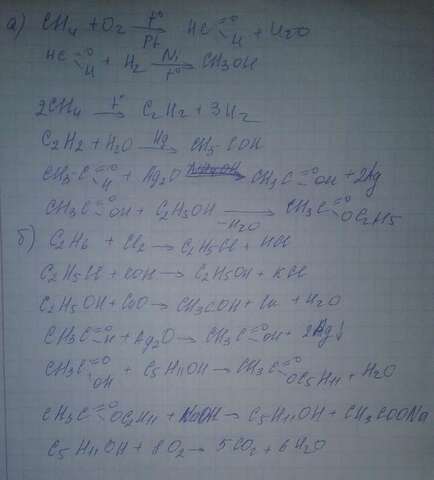 а) CH4 + O2 —t°/Pt→ HC =O -H + H2O
HC =O -H + H2 —Ni/t°→ CH3OH
2CH4 —t°→ C2H2 + 3H2
C2H2 + H2O —Hg→ CH3-COH
CH3-C =O -H + Ag2O → CH3C =O -OH + 2Ag
CH3C =O -OH + C2H5OH —-H2O→ CH3C =O -OC2H5
б) C2H6 + Cl2 → C2H5Cl + HCl
C2H5Cl + KOH → C2H5OH + KCl
C2H5OH + CuO → CH3COH + Cu + H2O
CH3C =O -H + Ag2O → CH3C =O -OH + 2Ag↓
CH3C =O -OH + C5H11OH → CH3C =O -OC5H11 + H2O
+ NaOH → C5H11OH + CH3COONa
C5H11OH + 8O2 → 5CO2 + 6H2O